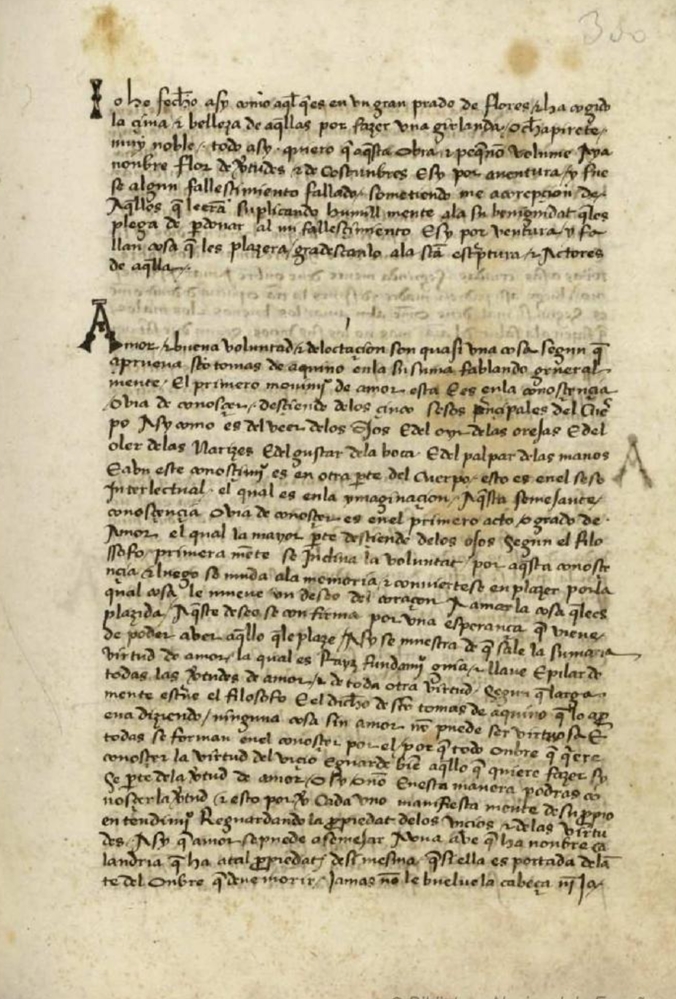 Io he fecho asy como aql̃ q̃ es en vn gran prado de flores / ha cogido
la çima & belleza de aq̃llas por fazer vna girlanda / o chapirete /
muy noble / todo asy quiero q̃ aq̃sta obra & peq̃no volume aya
nonbre flor de v̾tudes & de costunbres E sy por auentura / y fue
se algun fallesçimiento fallado / sometiendo me a correpçion de
Aq̃llos q̃ leerã suplicando humill mente ala su benignidat q̃ les
plega de p̱donar al mi fallesçimento E sy por ventura y fa
llan cosa q̃ les plazera / gradescanlo ala stã esc̃ptura & Actores
de aq̃lla
Amor & buena voluntad & delectaçion son quasi vna cosa segun q̃
aprueua sto tomas de aquino enla su suma fablando general
mente / El primero mouimi° de amor esta E es enla conosçençia
O via de conosçer / desçiende delos çinco sesos p̃nçipales del Cuer̃
po Asy como es del veer delos Ojos E del oyr delas orejas E del
oler delas Narizes E del gustar dela boca E del palpar delas manos
E avn este conosçimi° es en otra p̱te del Cuerpo / esto es enel seso
Intelectual el qual es enla ymaginaçion / Aq̃sta semejante /
conosçençia O via de conosçer es enel primero acto o grado de
Amor el qual la mayor p̱te desçiende delos ojos Segun el filo
sofo primera mẽte se Inclina la voluntat por aq̃sta conosçe
nçia & luego se muda ala memoria & conuiertese en plazer por la
qual cosa le mueue vn deseo del coraçon A amar la cosa q̃ le es
plazida / Aq̃ste deseo se confirma por vna esperança q̃ viene /
de poder aver aq̃llo q̃ le plaze / Asy se muestra de q̃ sale la sumaria
virtud de amor / la qual es Rayz fundami° guia & llaue E pilar de
todas las v̾tudes de amor / & de toda otra virtud Segun q̃ larga
mente escriue el filosofo E el dicho de sto tomas de aquino q̃ lo apr̃
eua diziendo / ninguna cosa sin amor nõ puede ser virtuosa E
todas se forman enel conosçer por el / por q̃ todo Onbre q̃ q̃ere
conosçer la virtud del viçio E guarde bien aq̃llo q̃ quiere fazer sy
Es p̱te dela v̾tud de amor / O sy nõ E en esta manera podras co
nosçer la v̾tud & esto por q̃ Cada vno manifiesta mente de su p̱pio
entendimi° Reguardando la p̱piedat delos viçios & delas virtu
des / Asy q̃ amor se puede asemejar A vna ave q̃ ha nonbre ca
landria q̃ ha atal p̱piedat de si mesma q̃ si ella es portada delã
te del Onbre q̃ deue morir / Jamas nõ le buelue la cabeça nj̃ lo
A